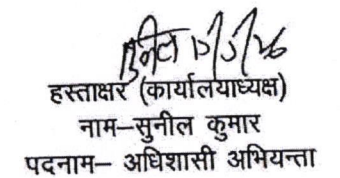 सुनील
हस्ताक्षर (कार्यालयाध्यक्ष)
नाम–सुनील कुमार
पदनाम– अधिशासी अभियन्ता